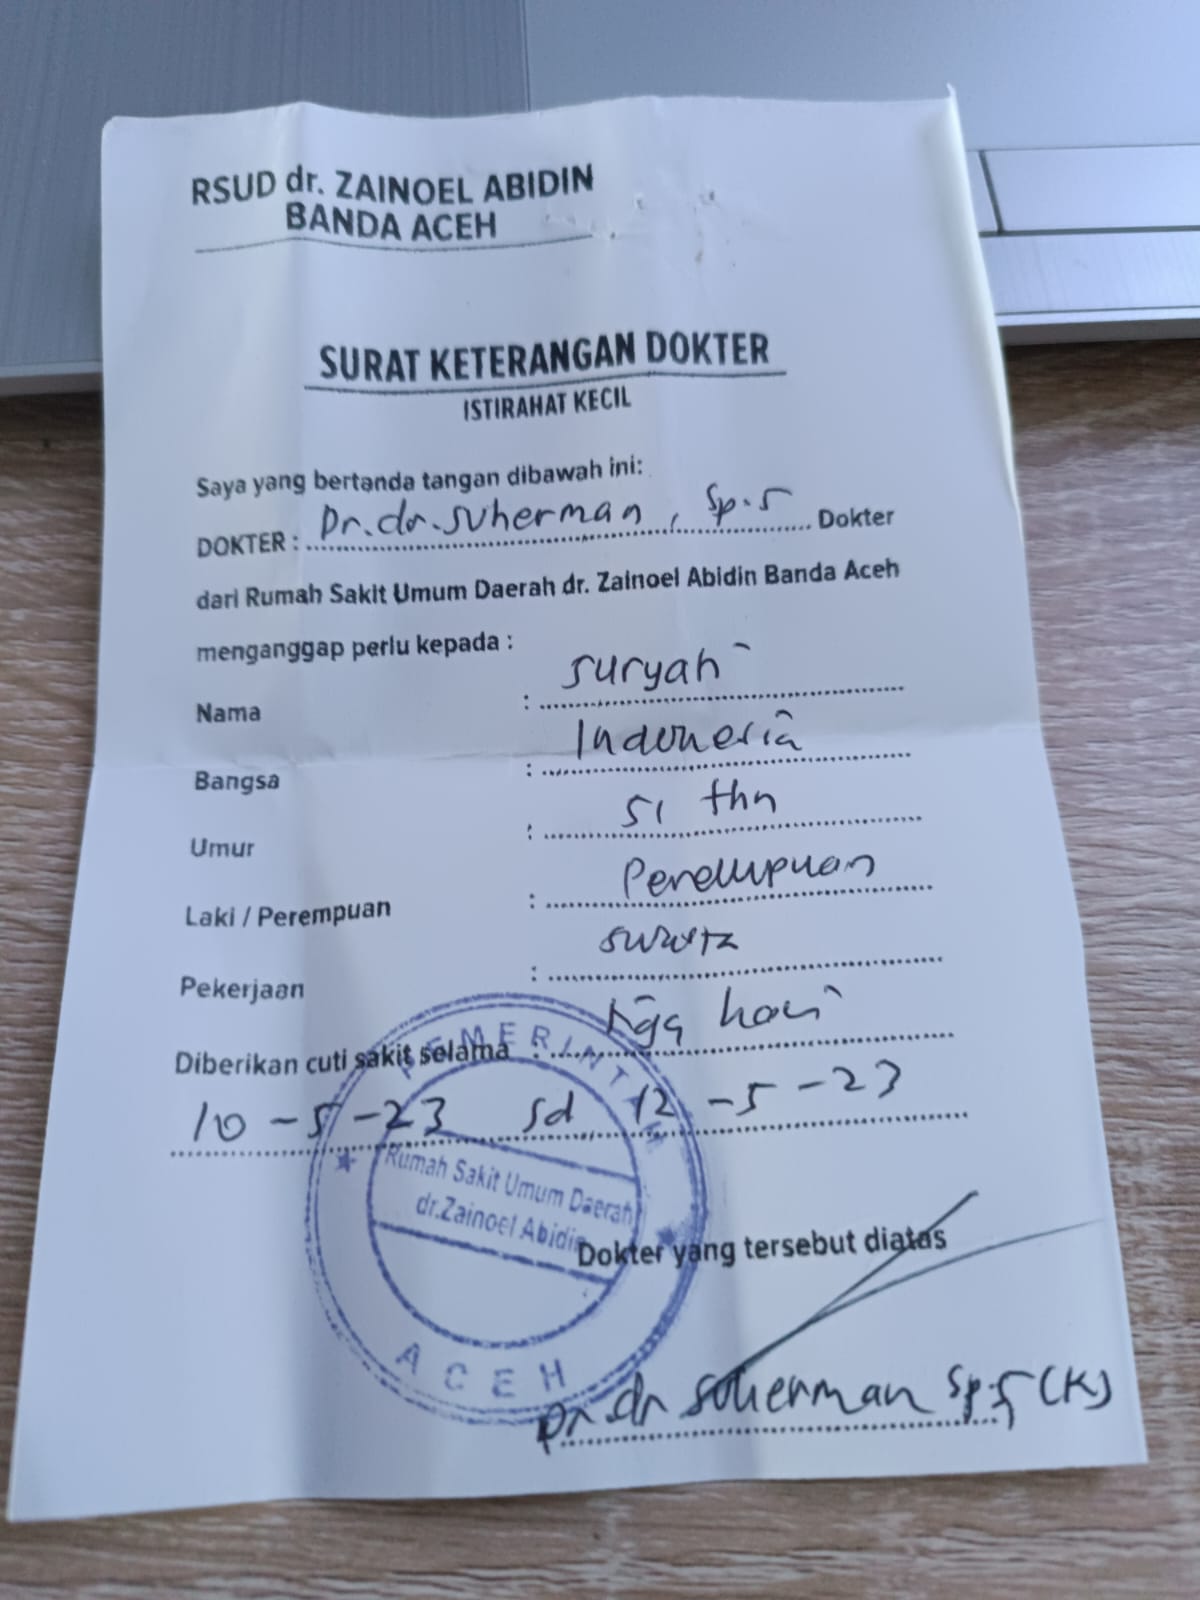 RSUD dr. ZAINOEL ABIDIN
BANDA ACEH
SURAT KETERANGAN DOKTER
ISTIRAHAT KECIL
Saya yang bertanda tangan dibawah ini:
DOKTER : Dr.dr.Suherman, Sp.S Dokter
dari Rumah Sakit Umum Daerah dr. Zainoel Abidin Banda Aceh
menganggap perlu kepada :
Nama : Suryani
Bangsa : Indonesia
Umur : 51 thn
Laki / Perempuan : Perempuan
Pekerjaan :
Diberikan cuti sakit selama : tiga hari
10-5-23 sd 12-5-23
PEMERINTAH
Rumah Sakit Umum Daerah
dr.Zainoel Abidin
ACEH
Dokter yang tersebut diatas
Dr.dr Suherman Sp.S(K)